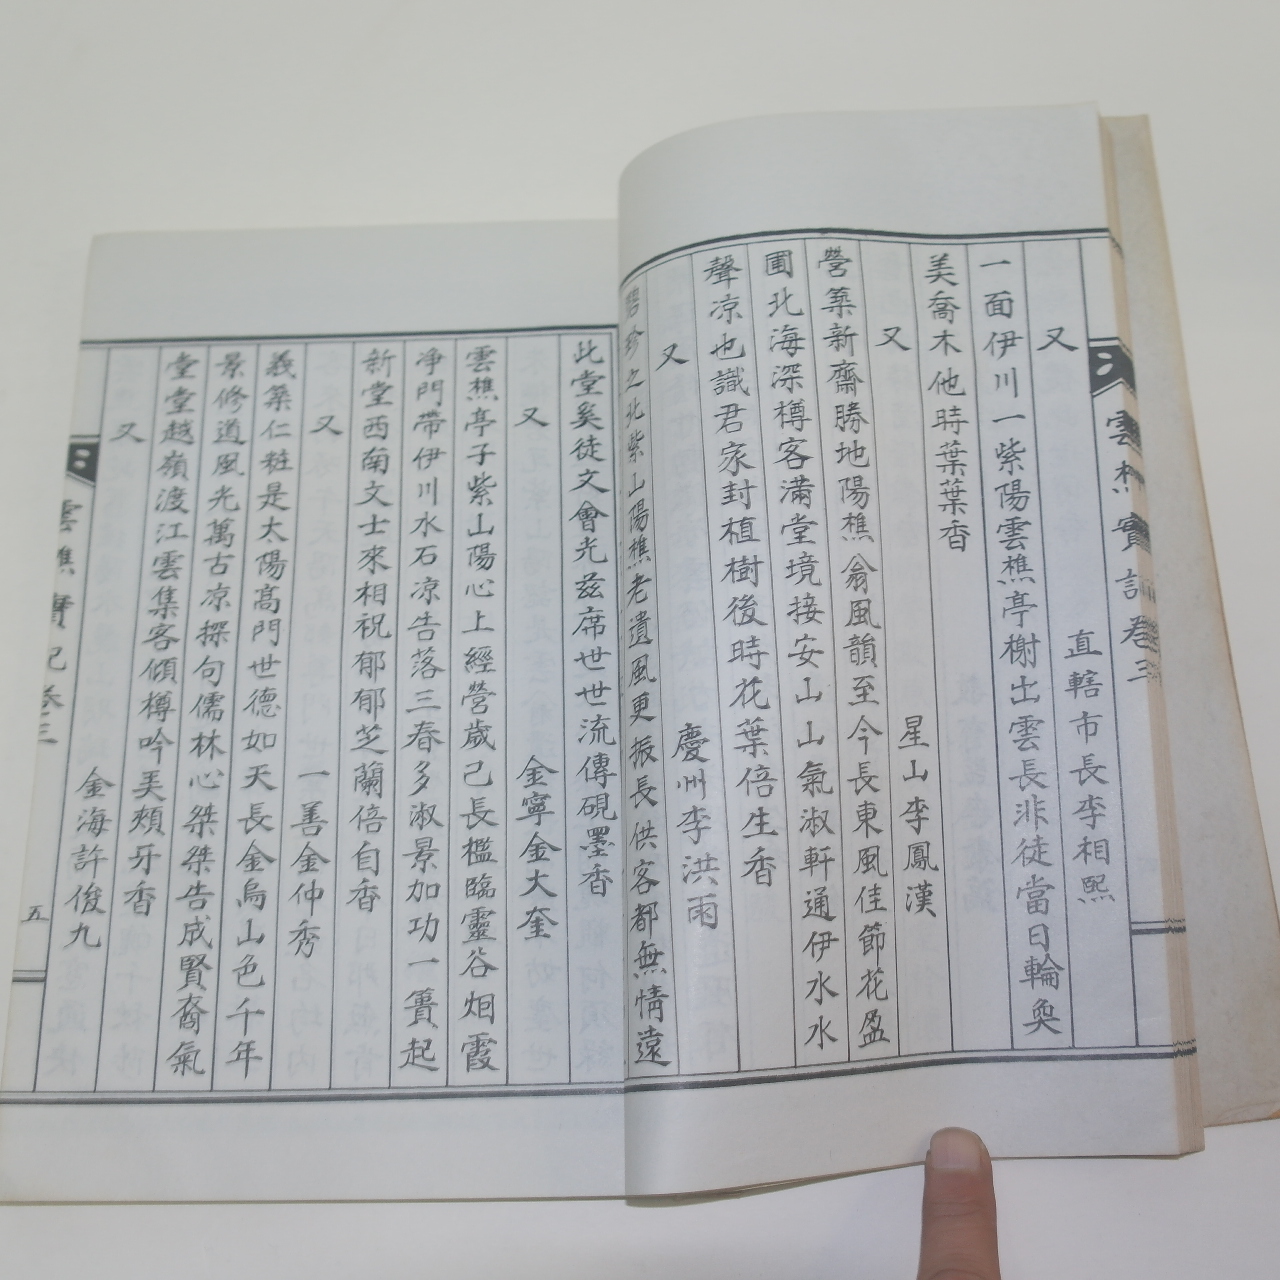 雲樵實記卷三
又 直轄市長李相熙
一面伊川一紫陽雲樵亭榭出雲長非徒當日輪奐
美喬木他時葉葉香
又 星山李鳳漢
營築新齋勝地陽樵翁風韻至今長東風佳節花盈
圃北海深樽客滿堂境接安山山氣淑軒通伊水水
聲凉也識君家封植樹後時花葉倍生香
又 慶州李洪雨
珍之北紫山陽樵老遺風更振長供客都無情遠
此堂奚徒文會光茲席世世流傳硯墨香
又 金寧金大奎
雲樵亭子紫山陽心上經營歲已長檻臨靈谷烟霞
淨門帶伊川水石凉告落三春多淑景加功一簣起
新堂西南文士來相祝郁郁芝蘭倍自香
又 一善金仲秀
義築仁粧是太陽高門世德如天長金烏山色千年
景修道風光萬古凉探句儒林心桀桀告成賢裔氣
堂堂越嶺渡江雲集客傾樽吟美頰牙香
又 金海許俊九
雲樵實記卷三 五